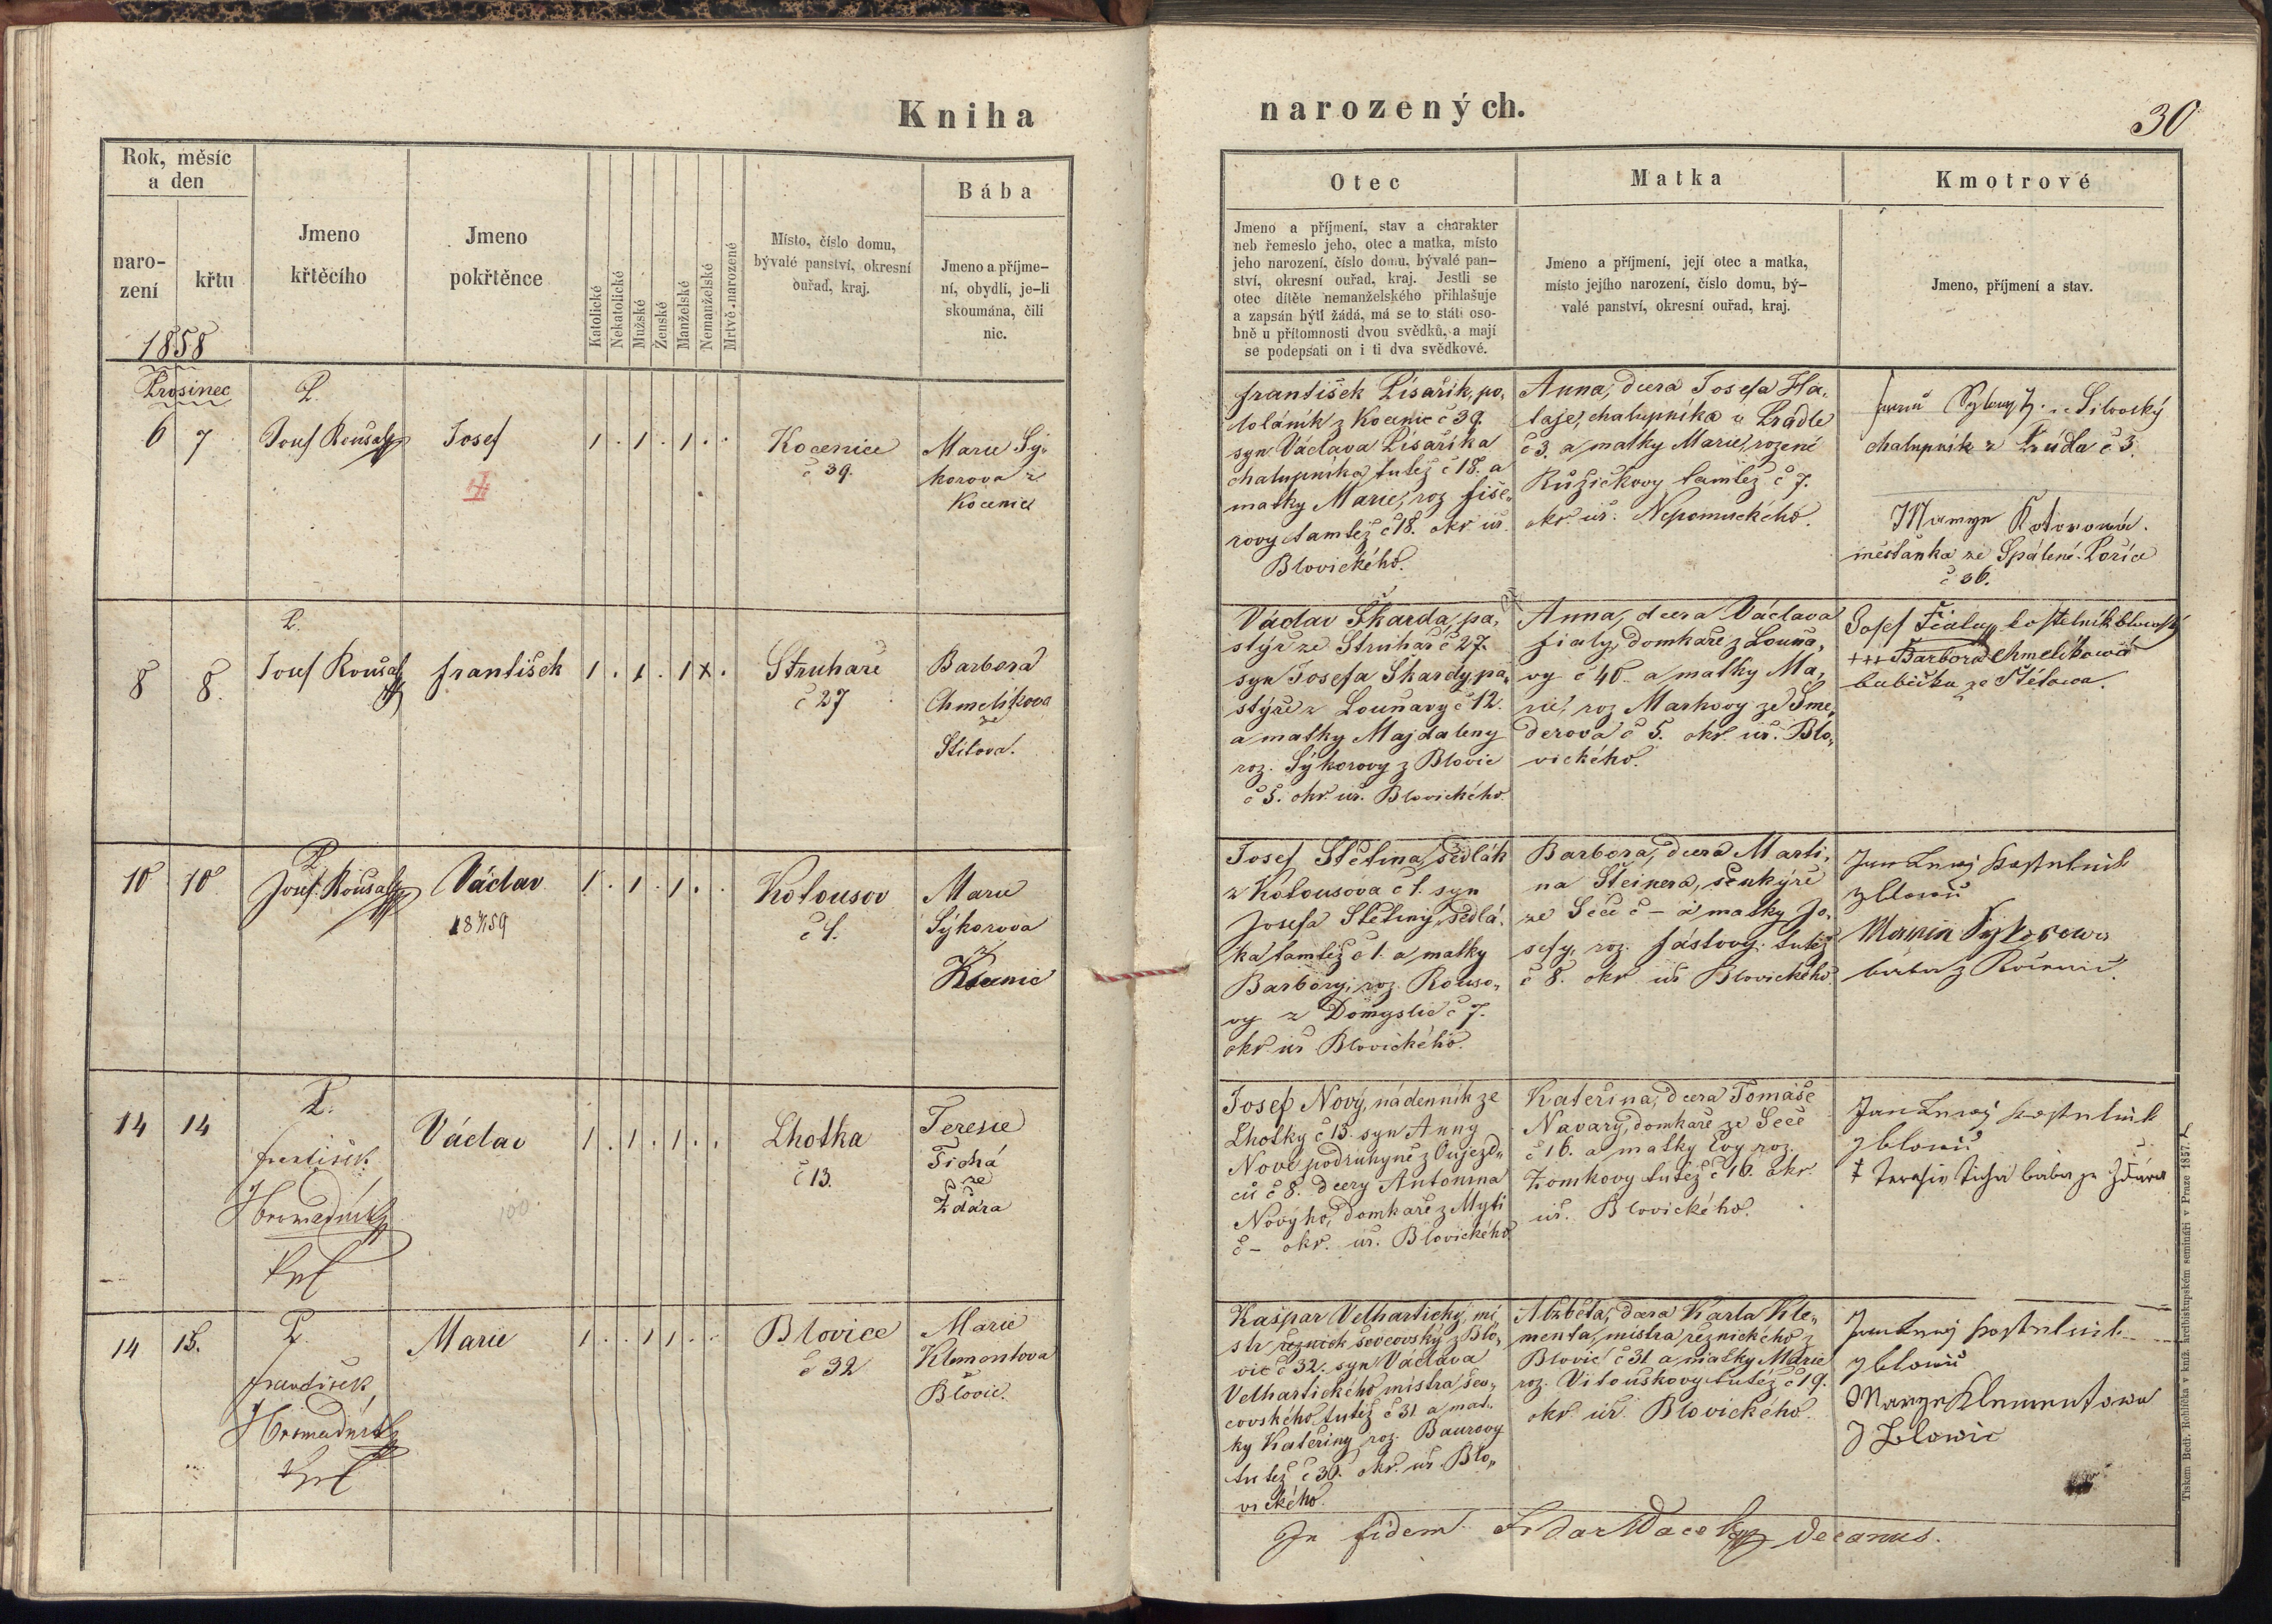 Kniha
narozených.
30
Rok, měsíc
a den
naro-
zení
křtu
Jmeno
křtěcího
Jmeno
pokřtěnce
Katolické
Nekatolické
Mužské
Ženské
Manželské
Nemanželské
Mrtvě narozené
Místo, číslo domu,
bývalé panství, okresní
ouřad, kraj.
Bába
Jmeno a příjme-
ní, obydlí, je-li
skoumána, čili
nic.
Otec
Jmeno a příjmení, stav a charakter
neb řemeslo jeho, otec a matka, místo
jeho narození, číslo domu, bývalé pan-
ství, okresní ouřad, kraj. Jestli se
otec dítěte nemanželského přihlašuje
a zapsán býti žádá, má se to státi oso-
bně u přítomnosti dvou svědků, a mají
se podepsati on i ti dva svědkové.
Matka
Jmeno a příjmení, její otec a matka,
místo jejího narození, číslo domu, bý-
valé panství, okresní ouřad, kraj.
Kmotrové
Jmeno, příjmení a stav.
1858
Prosinec
6 7
P.
Josef Kousal
Josef
1 . 1 . 1 . .
Kocenice
č 39.
Marie Sý-
korova z
Kocenic
František Pisařik, po-
z Kocenic č 39.
syn Václava Pisařika
chalupníka tutéž č 18. a
matky Marie, roz Fiše-
rovy tamtéž č 18. okr úř.
Blovického.
Anna, dcera Josefa Ha-
laje, chalupníka z Prádle
č 3. a matky Marie, rozené
Růžičkovy tamtéž č 7.
okr. úř. Nepomuckého.
chalupník z Prádla č 3.
Kotorowá.
měšťanka ze Spálené Poříčí
č 36.
8 8.
P.
Josef Kousal
František
1 . 1 . 1 x .
Struhaře
č 27
Barbora
Chmelikova
ze
Štítova.
Václav Škarda, pa-
stýř ze Struhař č 27.
syn Josefa Škardy, pa-
stýře z Louňavy č 12.
a matky Majdaleny
roz. Sýkorovy z Blovic
č 5. okr. úř. Blovického.
Anna, dcera Václava
Fialy, domkaře z Louňa-
vy č 40. a matky Ma-
rie, roz Markovy ze Sme-
derova č 5. okr. úř. Blo-
vického.
Josef Fiala kostelník blowický
+++ Barbora Chmelikowá
babička ze Štítowa.
10 10.
P.
Josef Kousal
Václav
1 . 1 . 1 . .
Kotousov
č 1.
Marie
Sýkorova
z
Kocenic
Josef Štětina, sedlák
z Kotousova č 1. syn
Josefa Štětiny, sedlá-
ka tamtéž č 1. a matky
Barbory, roz. Rouso-
vy z Domyslic č 7.
okr. úř Blovického.
Barbora, dcera Marti-
na Šteinera, šenkýře
ze Seče č – a matky Jo-
sefy, roz. Fástovy tutéž
č 8. okr úř Blovického.
Jan Nowý kostelník
z blowic
Marie Sykorowa
baba z Kocenic.
14 14
P.
František
Hromadník
Kpl
Václav
1 . 1 . 1 . .
Lhotka
č 13.
Teresie
Tichá
ze
Ždára
Josef Nový, nádenník ze
Lhotky č 13. syn Anny
Nové podruhyně z Oujezd-
cíi č 8. dcery Antonína
Novýho, domkaře z Mýti
č – okr. úř. Blovického
Kateřina, dcera Tomáše
Navary, domkaře ze Seče
č 16. a matky Evy roz.
Zomkovy tutéž č 16. okr.
úř. Blovického.
Jan Nowý kostelník
z blowic
+ Teresie Tichá baba ze Ždára
14 15.
P.
František
Hromadník
Kpl
Marie
1 . . 1 1 . .
Blovice
č 32
Marie
Klementova
Blovic.
Kašpar Velhartický, mi-
str řeznick ševcovský z Blo-
vic č 32. syn Václava
Velhartického mistra šev-
covského tutéž č 31 a mat-
ky Kateřiny roz. Baurovy
tutéž č 30. okr. úř. Blo-
vického.
Alžběta, dcera Karla Kle-
menta, mistra řeznického z
Blovic č 31 a matky Marie
roz. Vitouškovy tutéž č 19.
okr úř. Blovického.
Jan Nowý kostelník
z blowic
Marye Klementowa
z Blowic
In fidem decanus.